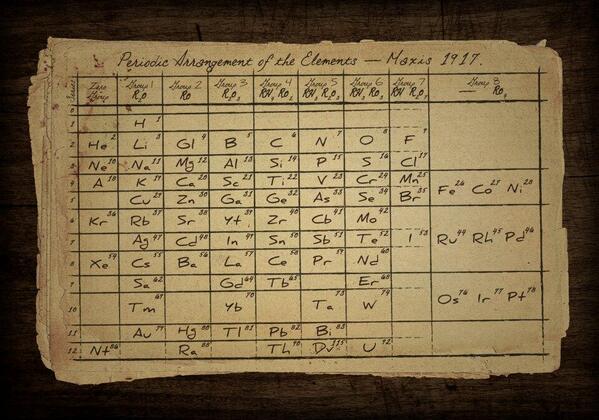 Periodic Arrangement of the Elements — Maxis 1917.
Series Zero Group Group 1 R₂O Group 2 RO Group 3 R₂O₃ Group 4 RH₄ RO₂ Group 5 RH₃ R₂O₅ Group 6 RH₂ RO₃ Group 7 RH R₂O₇ Group 8 — RO₄
0
1 H 1
2 He 2 Li 3 Gl 4 B 5 C 6 N 7 O 8 F 9
3 Ne 10 Na 11 Mg 12 Al 13 Si 14 P 15 S 16 Cl 17
4 A 18 K 19 Ca 20 Sc 21 Ti 22 V 23 Cr 24 Mn 25 Fe 26 Co 27 Ni 28
5 Cu 29 Zn 30 Ga 31 Ge 32 As 33 Se 34 Br 35
6 Kr 36 Rb 37 Sr Yt Zr 40 Cb 41 Mo 42 Ru 44 Rh 45 Pd 46
7 Ag 47 Cd 48 In 49 Sn 50 Sb 51 Te 52 I 53
8 Xe 54 Cs 55 Ba 56 La 57 Ce 58 Pr 59 Nd 60
9 Sa 62 Gd 64 Tb 65 Er 68
10 Tm Yb 70 Ta 73 W 74 Os 76 Ir 77 Pt 78
11 Au 79 Hg 80 Tl 81 Pb 82 Bi 83
12 Nt 86 Ra 88 Th 90 Dv 115 U 92